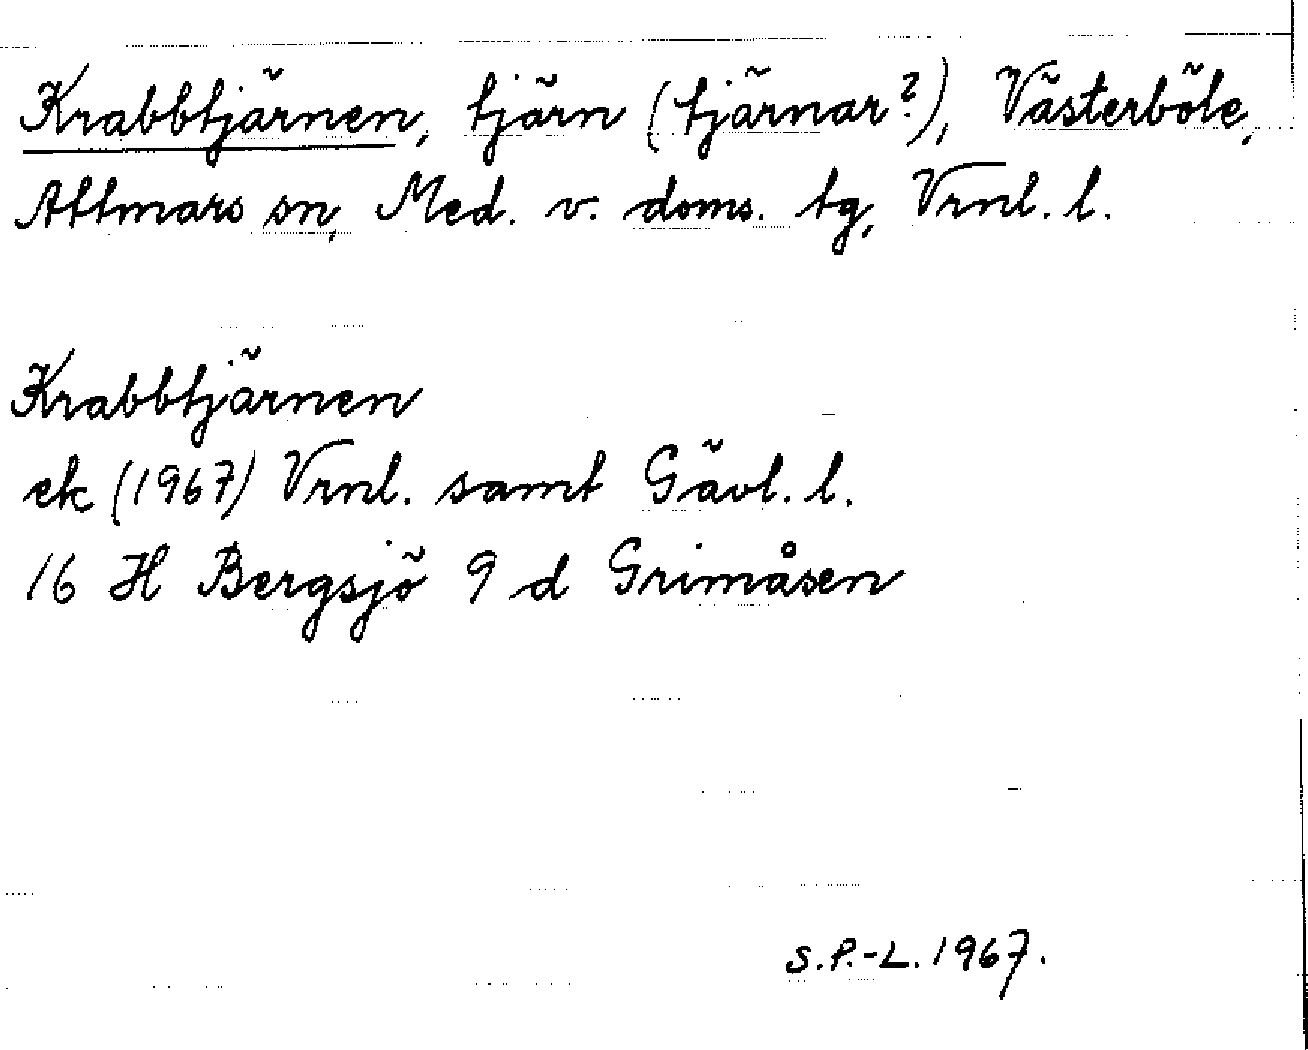 Krabbtjärnen, tjärn (tjärnar?), Västerböle,
Attmars sn, Med. v. doms. tg, Vrnl. l.
Krabbtjärnen
ek (1967) Vrnl. samt Gävl. l.
16 H Bergsjö 9 d Grimåsen
S.P.-L. 1967.